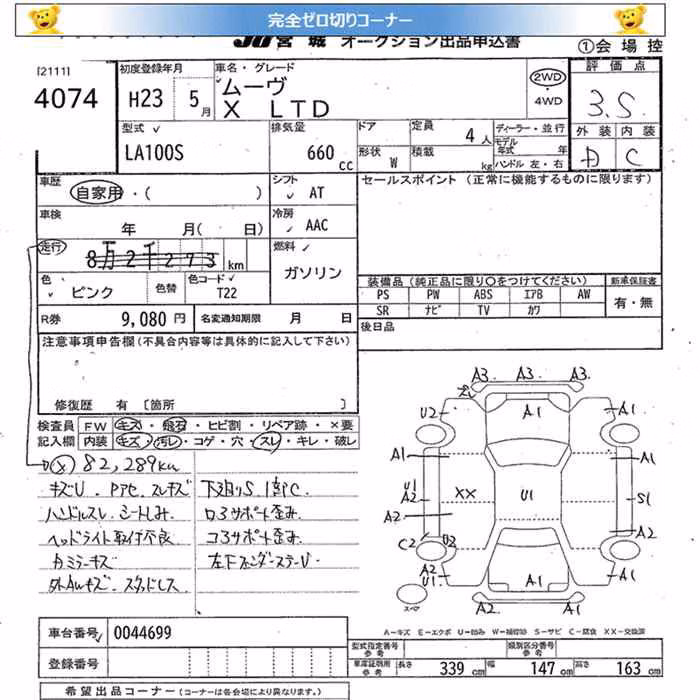 完全ゼロ切りコーナー
JU 宮城 オークション出品申込書
①会場控
[2111]
4074
初度登録年月
H23 5月
車名・グレード
ムーヴ
X LTD
2WD
・
4WD
評価点
3.5
外装 内装
D C
型式
LA100S
排気量
660 cc
ドア
定員
4人
形状 W
積載
kg
ディーラー・並行
モデル年式 年
ハンドル 左・右
車歴
自家用・( )
シフト
AT
セールスポイント (正常に機能するものに限ります)
車検
年 月( 日)
冷房
AAC
走行
8万2千273 km
燃料
ガソリン
色
ピンク
色替
色コードNo
T22
装備品(純正品に限り○をつけてください)
新車保証書
PS PW ABS エアB AW
SR ナビ TV カワ
有・無
R券
9,080円
名変通知期限 月 日
後日品
注意事項申告欄(不具合内容等は具体的に記入して下さい)
修復歴 有 〔箇所 〕
検査員記入欄
FW キズ・飛石・ヒビ割・リペア跡・×要
内装 キズ・汚レ・コゲ・穴・スレ・キレ・破レ
(x) 82,289km
キズU. Pアセ. スレキズ
ハンドルスレ シートしみ.
ヘッドライト取付不良
カミラーキズ
外AWキズ. スタッドレス
下廻りS.1部C.
ロ3サポート歪み.
コ3サポート歪み.
左下フェンダーステーU
A3 A3. A3.
U2 A1 A1
A1 A1
U1
A2 XX U1 S1
A2 A2
C2 U2
A2
U1 A1 A1
A2 A1
スペア
A-キズ E-エクボ U-凹み W-補修跡 S-サビ C-腐食 XX-交換済
車台番号 0044699
登録番号
型式指定番号
参考
類別区分番号
参考
車庫証明用
参考
長さ 339 cm 幅 147 cm 高さ 163 cm
希望出品コーナー (コーナーは各会場により異なります。)